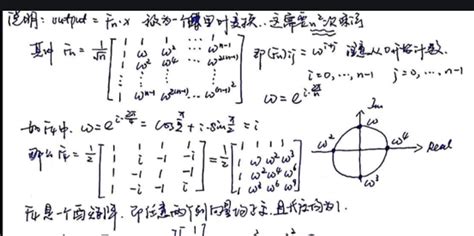 说明: output = Fn·x 称为一个傅里叶变换. 这需要n²次乘法
其中 Fn = 1/√n [1 1 1 ⋯ 1; 1 ω ω² ⋯ ω^(n-1); 1 ω² ω⁴ ⋯ ω^(2(n-1)); ⋮; 1 ω^(n-1) ω^(2(n-1)) ⋯ ω^((n-1)²)] 即(Fn)ij = ω^(i·j) 注意从0开始计数.
i=0,…,n-1 j=0,…,n-1
ω = e^(i·2π/n)
如F4中. ω = e^(i·2π/4) = cos π/2 + i·sin π/2 = i
那么F4 = 1/2 [1 1 1 1; 1 i -1 -i; 1 -1 1 -1; 1 -i -1 i] = 1/2 [1 1 1 1; 1 ω ω² ω³; 1 ω² ω⁴ ω⁶; 1 ω³ ω⁶ ω⁹]
Im
ω
ω² ω⁴ Real
ω³
F4是一个酉矩阵. 即任意两个列向量均正交. 且长度均为1.